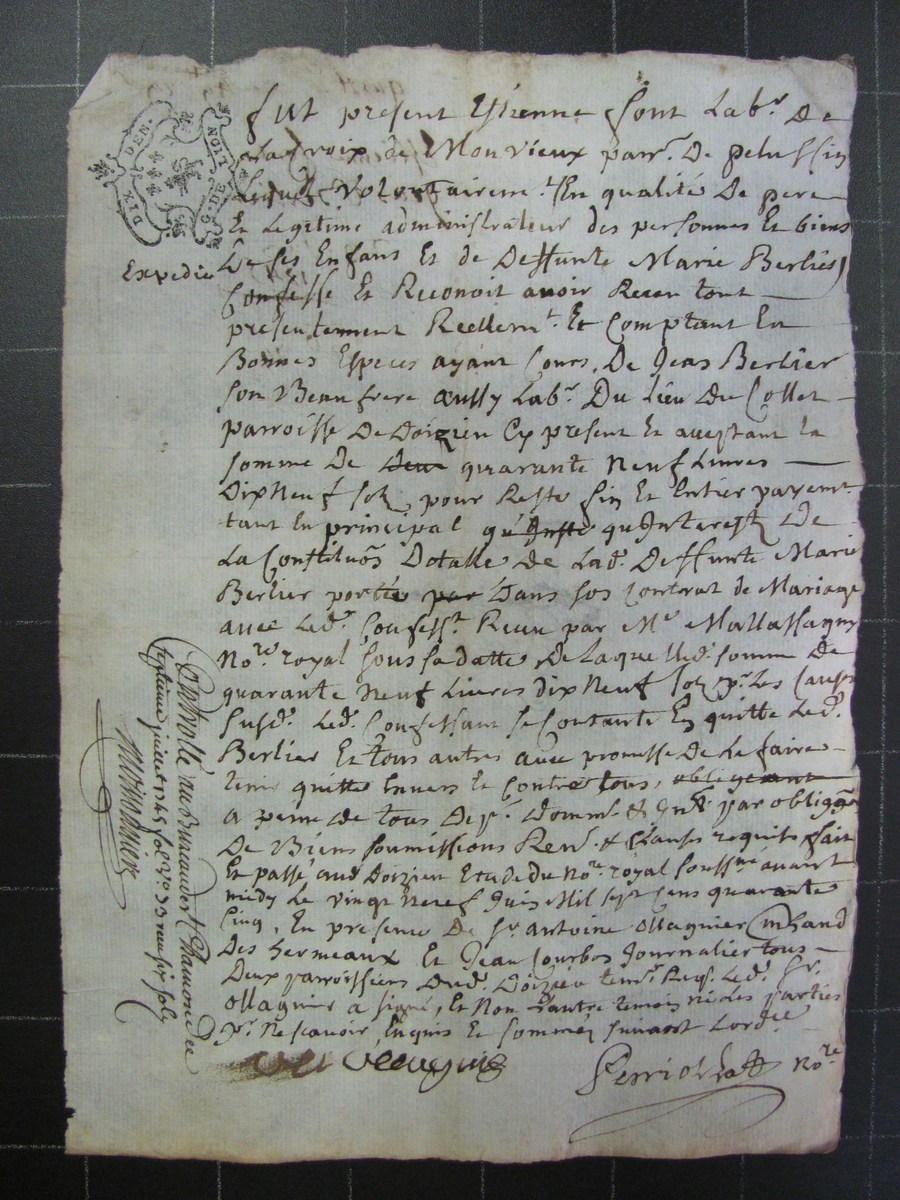 DIX DEN.
G. DE LION
Expedié
fut present Estienne font Labr. De
Lacroix de Monvieux parr. De pelussin
Lequel Volontairemt. En qualité De pere
Et Legitime administrateur des personnes Et biens
De ses Enfans Et de Deffunte Marie Berlier
Confesse Et Reconoit avoir Receu tout
presentement Reellemt. Et Comptant En
Bonnes Especes ayant Cours, De Jean Berlier
son Beaufrere aussy Labr. Du Lieu du Collet
parroisse De Doizieu Cy present Et acceptant la
somme De deux quarante Neuf Livres
Dix Neuf solz, pour Reste fin Et Entier payemt.
tant En principal qu'Inste qu'Interestz de
La Constituõn Dotalle de Lad. Deffunte Marie
Berlier portée par Dans son Contrat de Mariage
avec Led. Confesst. Receu par Me Mallassagny
Nore. royal sous sa datte, De laquelle d. somme de
quarante Neuf Livres Dix Neuf solz pr. Les Causes
susd. Led. Confessant se Contante En quitte Led.
Berlier Et tous autres avec promesse De Le faire
tenir quitte Envers Et Contre tous, obligeant
a peine de tous Dep. Domm. & Int. par obligõn
De Biens soumissions Ren. & Clauses requises, fait
Et passé aud. Doizieu Etude du Nore. royal soussné. avant
midy Le vingt Neuf Juin Mil sept Cens quarante
Cinq, En presence De sr. antoine Ollagnier
Des hermeaux Et Jean Journalier tous
Deux parroissiens Dud. Doizieu temr. Req. Led. sr.
Ollagnier a signé, Et Non L'autre temoin ni Les parties
pr. Ne scavoir, Enquis Et sommez suivant Lordce
Nore
Controllé au Bureau de St Chamond Le
septieme juillet 1745 fol Vo 33 receu six solz